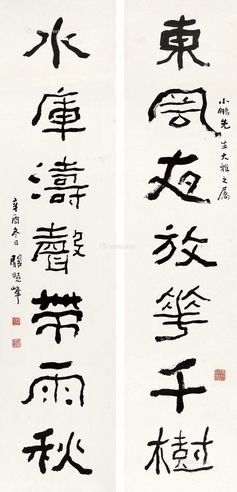 東風夜放華千樹
小鵬先生大雅之屬
水庫濤聲帶雨秋
辛酉冬日 關曉峰